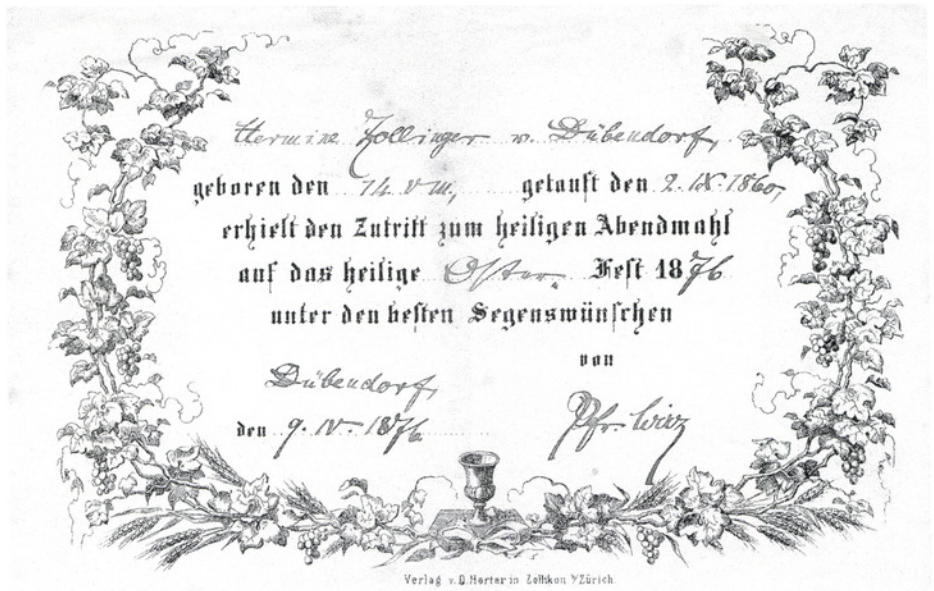 Hermine Zollinger v. Dübendorf,
geboren den 14. VIII., getauft den 2. IX. 1860,
erhielt den Zutritt zum heiligen Abendmahl
auf das heilige Oster- Fest 1876
unter den besten Segenswünschen
von
Dübendorf,
den 9. IV. 1876
Pfr. Wirz
Verlag v. D. Herter in Zollikon b/Zürich.